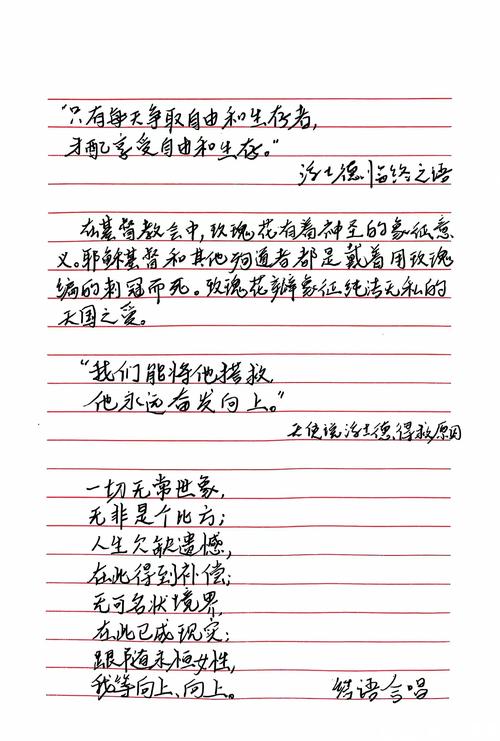 “只有每天争取自由和生存者，
才配享受自由和生存。”
浮士德临终之语
在基督教会中，玫瑰花有着神圣的象征意
义。耶稣基督和其他殉道者都是戴着用玫瑰
编的刺冠而死。玫瑰花瓣象征纯洁无私的
天国之爱。
“我们能将他搭救，
他永远奋发向上。”
天使说浮士德得救原因
一切无常世象，
无非是个比方；
人生欠缺遗憾，
在此得到补偿；
无可名状境界，
在此已成现实；
跟随永恒女性，
我等向上、向上。
结语合唱